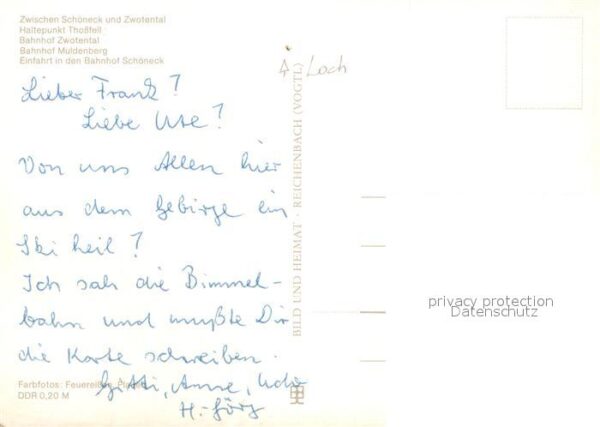 Zwischen Schöneck und Zwotental
Haltepunkt Thoßfell
Bahnhof Zwotental
Bahnhof Muldenberg
Einfahrt in den Bahnhof Schöneck
Loch
Lieber Frank?
Liebe Ute?
Von uns Allen hier
aus dem Gebirge ein
Ski heil?
Ich sah die Bimmel-
bahn und mußte Dir
die Karte schreiben.
Gitti, Anne, Udo
H.-Jörg
Farbfotos: Feuereißen,
DDR 0,20 M
BILD UND HEIMAT · REICHENBACH (VOGTL)
privacy protection
Datenschutz